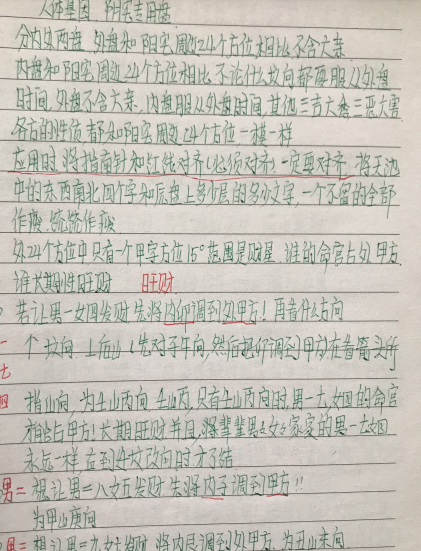 人体基因 阴宅专用盘
分内外两盘 外盘和阳宅周边24个方位相比不含六亲
内盘和阳宅周边24个方位相比 不论什么坟向都要服从外盘
时间 外盘不含六亲 内盘服从外盘时间 其他三吉六秀三恶大害
各方的性质都和阳宅周边24个方位一模一样
应用时 将指南针和红线对齐(必须对齐)一定要对齐 将天池
中的东西南北四个字和底盘上多少层的多少文字 一个不留的全部
作废 统统作废
外24个方位中只有一个甲字方位15°范围是财星 谁的命宫占外甲方
谁长期性旺财 旺财
若让男一女四发财 先将内卯调到外甲方! 再看什么方向
一 个坟向 上后山(先对子午向,然后把卯调到甲方)在看箭头所
七
四 指山向,为壬山丙向 壬山丙 只有壬山丙向时,男一七女四的命宫
才能占甲方!长期旺财并且 将辈辈男女家爱的男一七女四
永远一样 直到坟改向时才了结
男二 想让男二八女五发财 先将内子调到甲方!!
为甲山庚向
男三 想让男三九女七发财 将内 调到外甲方 为丑山未向